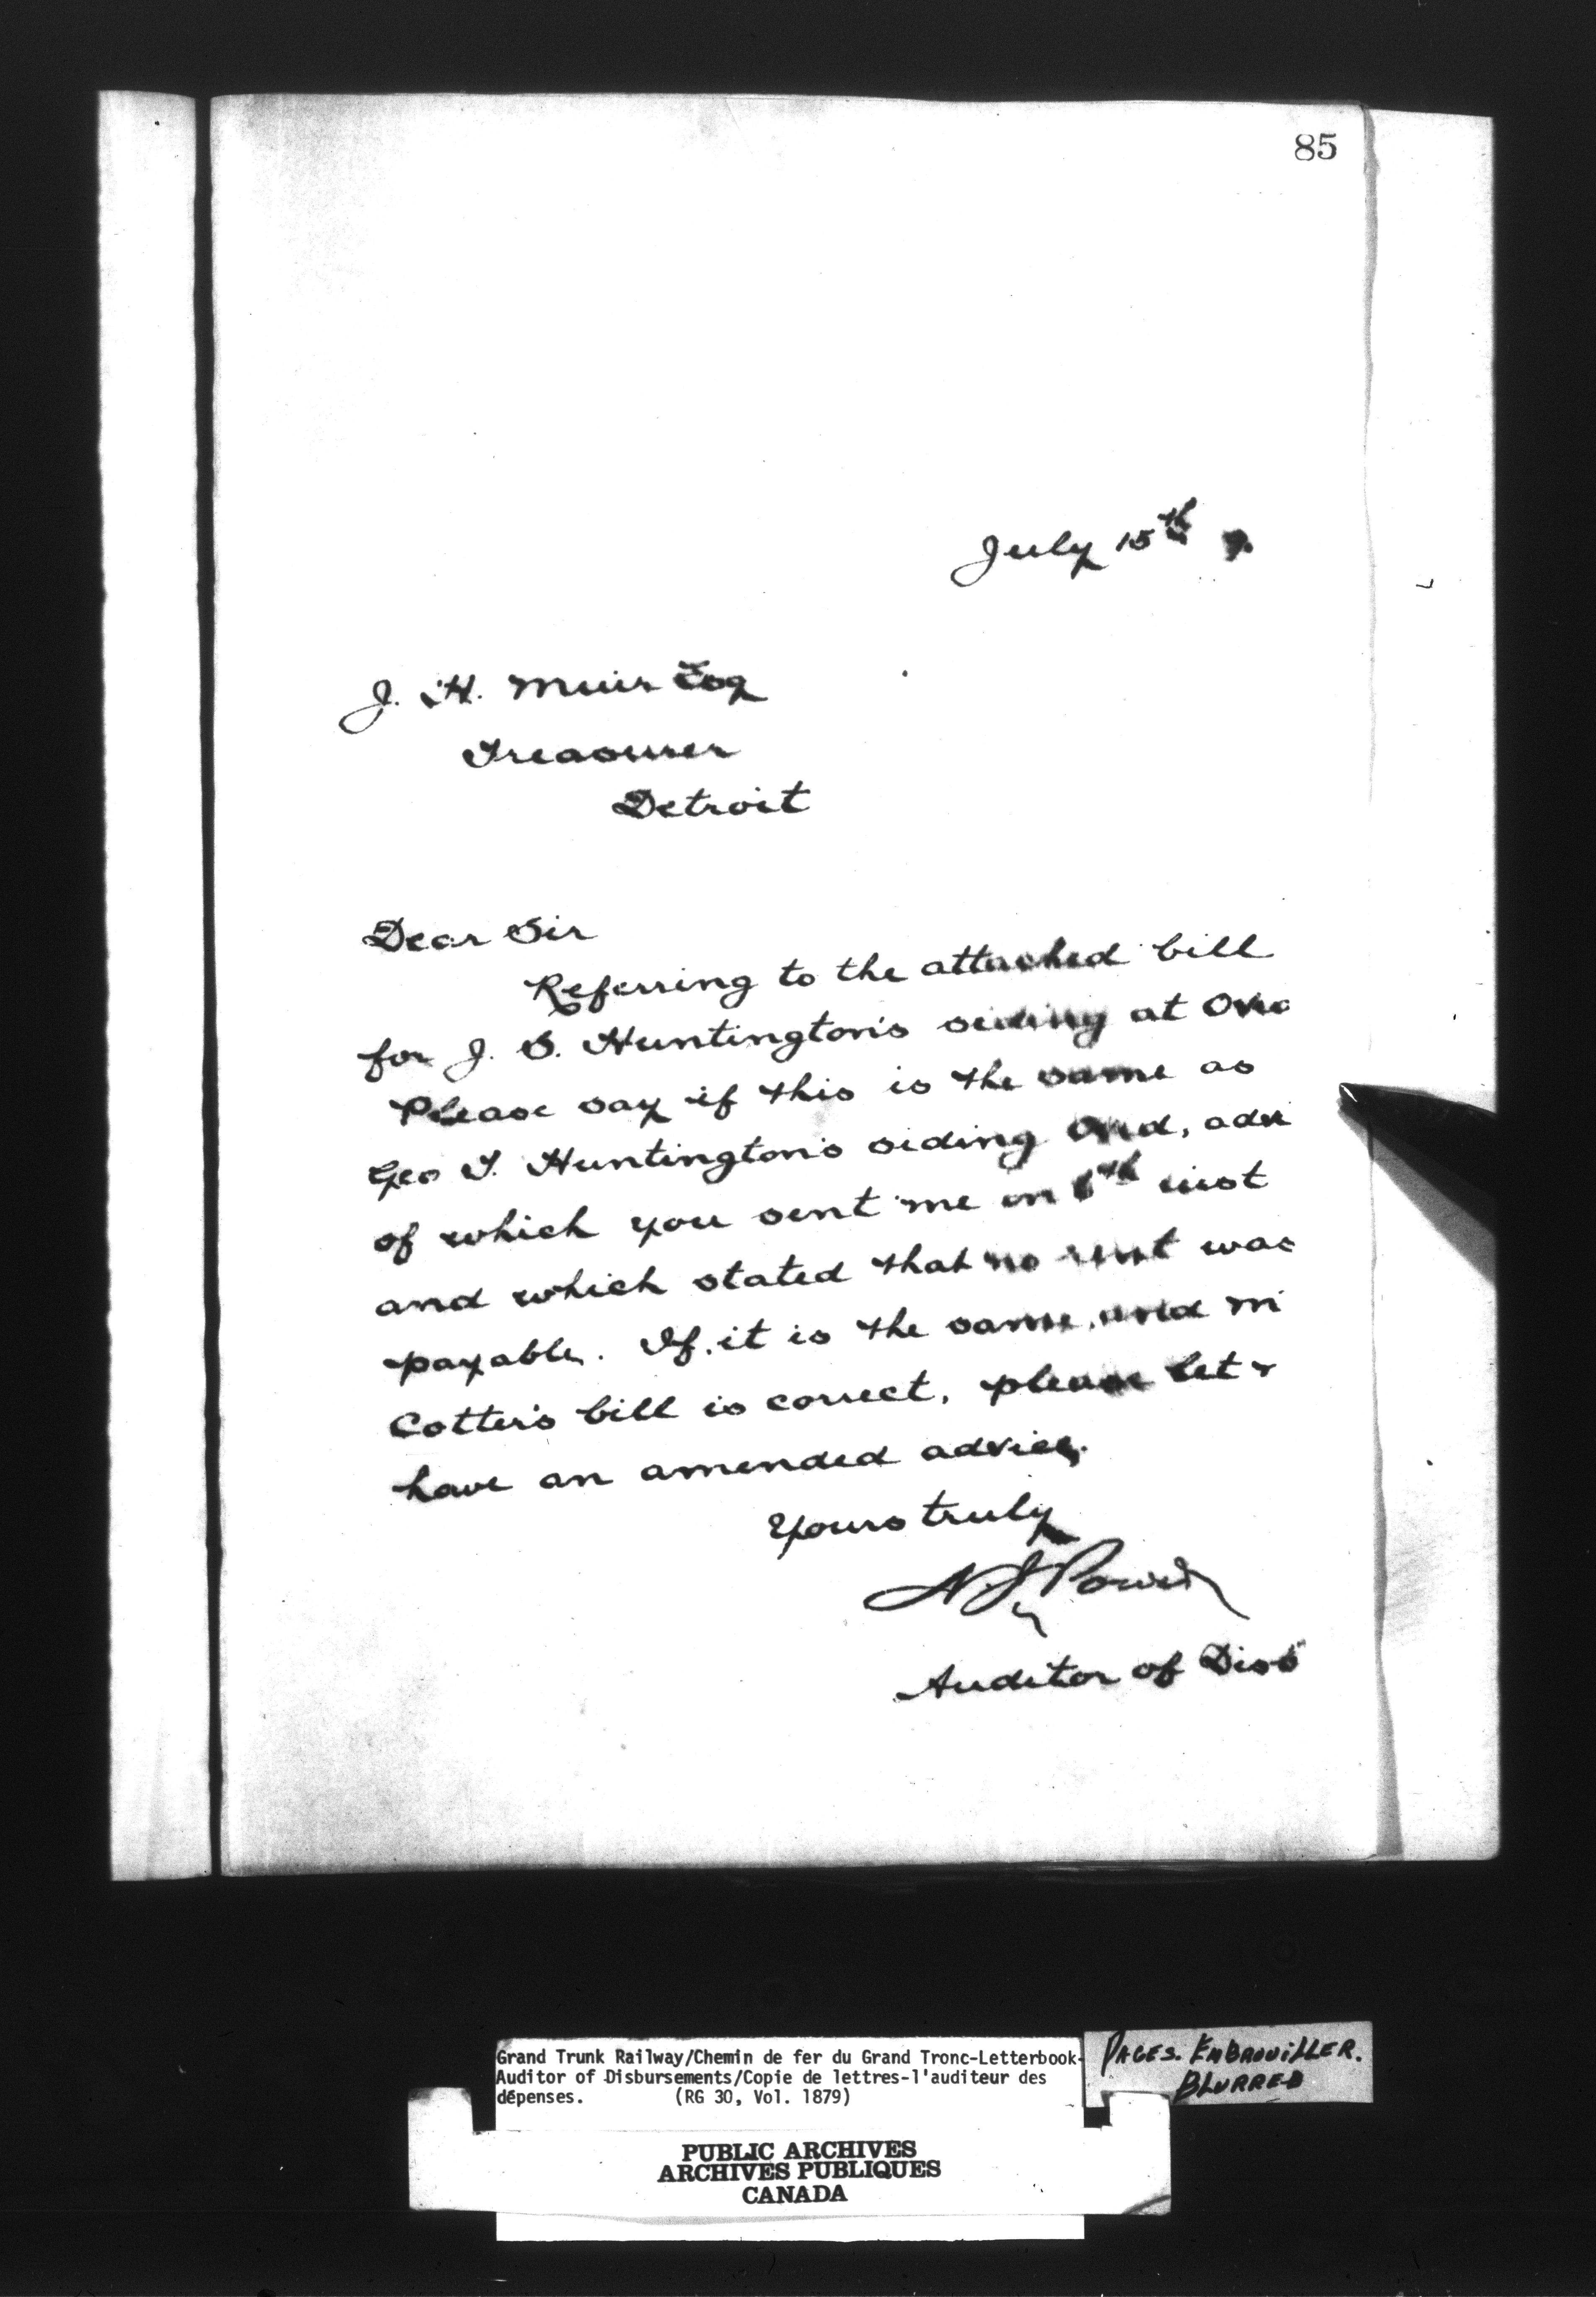 85
July 15th 9.
J. H. Muir Esq
Treasurer
Detroit
Dear Sir
Referring to the attached bill
for J. S. Huntington's siding at
Please say if this is the same as
Geo T. Huntington's siding
of which you sent me on inst
and which stated that no rent was
payable. If it is the same, and
Cotter's bill is correct, please let
have an amended advice.
Yours truly
Power
Auditor of Disb
Grand Trunk Railway/Chemin de fer du Grand Tronc-Letterbook-
Auditor of Disbursements/Copie de lettres-l'auditeur des
dépenses. (RG 30, Vol. 1879)
PAGES. EMBROUILLER.
BLURRED
PUBLIC ARCHIVES
ARCHIVES PUBLIQUES
CANADA